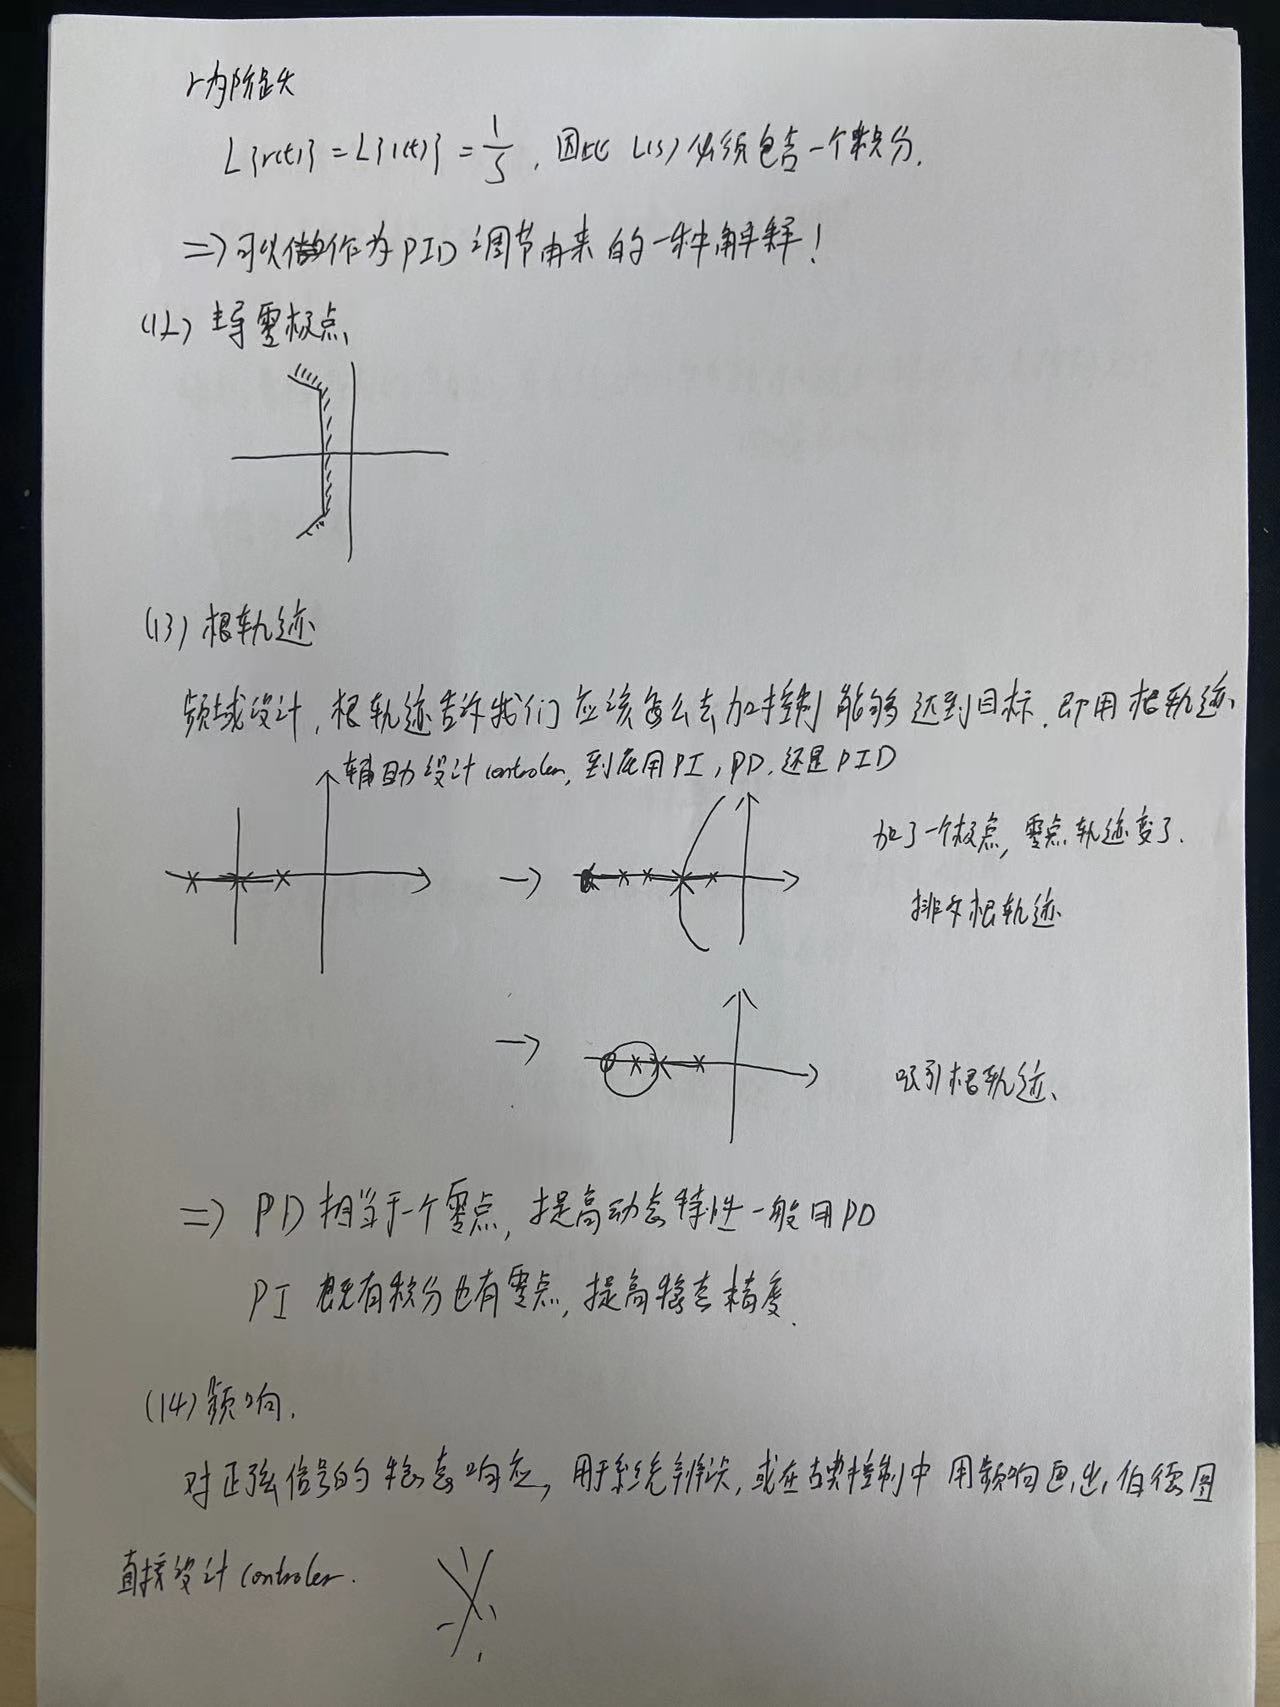 r为阶跃
L{r(t)} = L{1(t)} = 1/S , 因此 L(s) 必须包含一个积分.
=> 可以作为PID调节由来的一种解释!
(12) 主导零极点
(13) 根轨迹
频域设计, 根轨迹告诉我们应该怎么去加控制能够达到目标. 即用根轨迹
辅助设计controler, 到底用PI, PD, 还是PID
加了一个极点, 零点轨迹变了.
排斥根轨迹
吸引根轨迹
=> PD相当于一个零点, 提高动态特性一般用PD
PI 既有积分也有零点, 提高稳态精度.
(14) 频响.
对正弦信号的稳态响应, 用于系统辨识, 或在古典控制中用频响画出伯德图
直接设计controler.